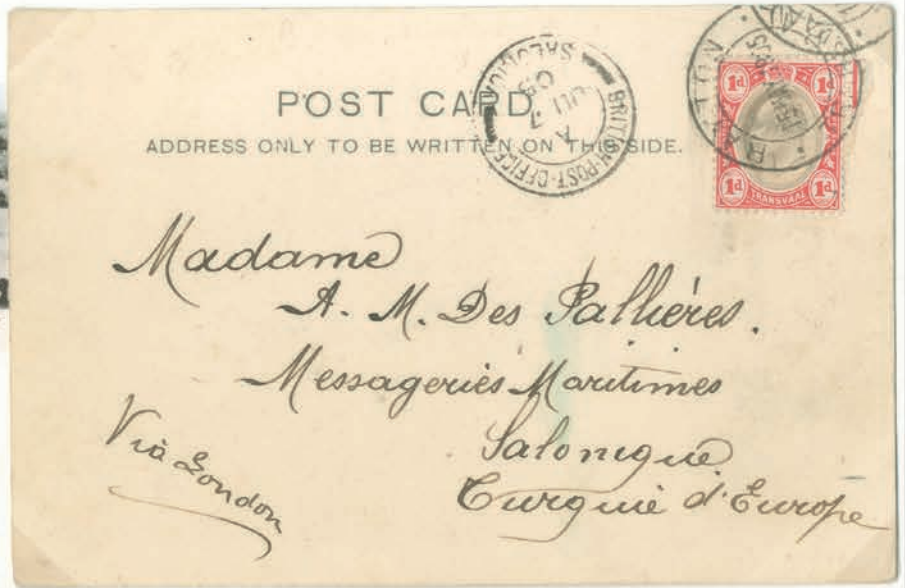 POST CARD.
ADDRESS ONLY TO BE WRITTEN ON THIS SIDE.
BRITISH·POST·OFFICE
SALONICA
A
JU 7
05
1d 1d
1d 1d
TRANSVAAL
Madame
A. M. Des Pallières.
Messageries Maritimes
Salonique
Turquie d'Europe
Viâ London